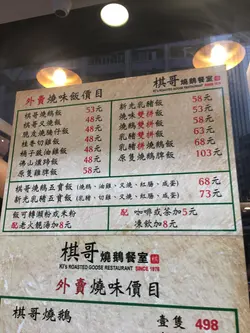 外賣燒味飯價目
棋哥燒鵝餐室
KI's ROASTED GOOSE RESTAURANT SINCE 1978
棋哥燒鵝飯 53元
棋哥叉燒飯 48元
脆皮燒腩仔飯 48元
桂香切雞飯 48元
橘子豉油雞飯 48元
佛山燻蹄飯 48元
原隻雞脾飯 58元
新光乳豬飯 58元
燒味雙拼飯 58元
燒鵝雙拼飯 63元
乳豬雙拼飯 68元
原隻燒鵝脾飯 103元
棋哥燒鵝五寶飯 (燒鵝、油雞、叉燒、紅腸、咸蛋) 68元
新光乳豬五寶飯 (乳豬、油雞、叉燒、紅腸、咸蛋) 73元
飯可轉瀨粉或米粉 配 咖啡或茶加5元
配 老火靚湯加8元 凍飲加8元
棋哥燒鵝餐室
KI's ROASTED GOOSE RESTAURANT SINCE 1978
外賣燒味價目
棋哥燒鵝 壹隻 498